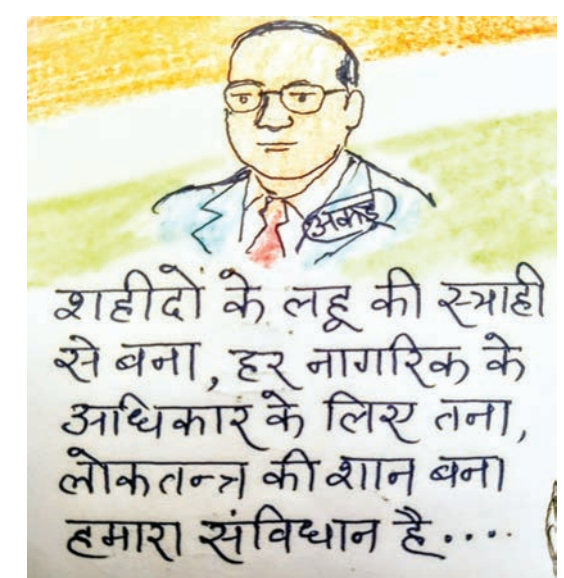 अकड़
शहीदों के लहू की स्याही
से बना, हर नागरिक के
अधिकार के लिए तना,
लोकतन्त्र की शान बना
हमारा संविधान है....